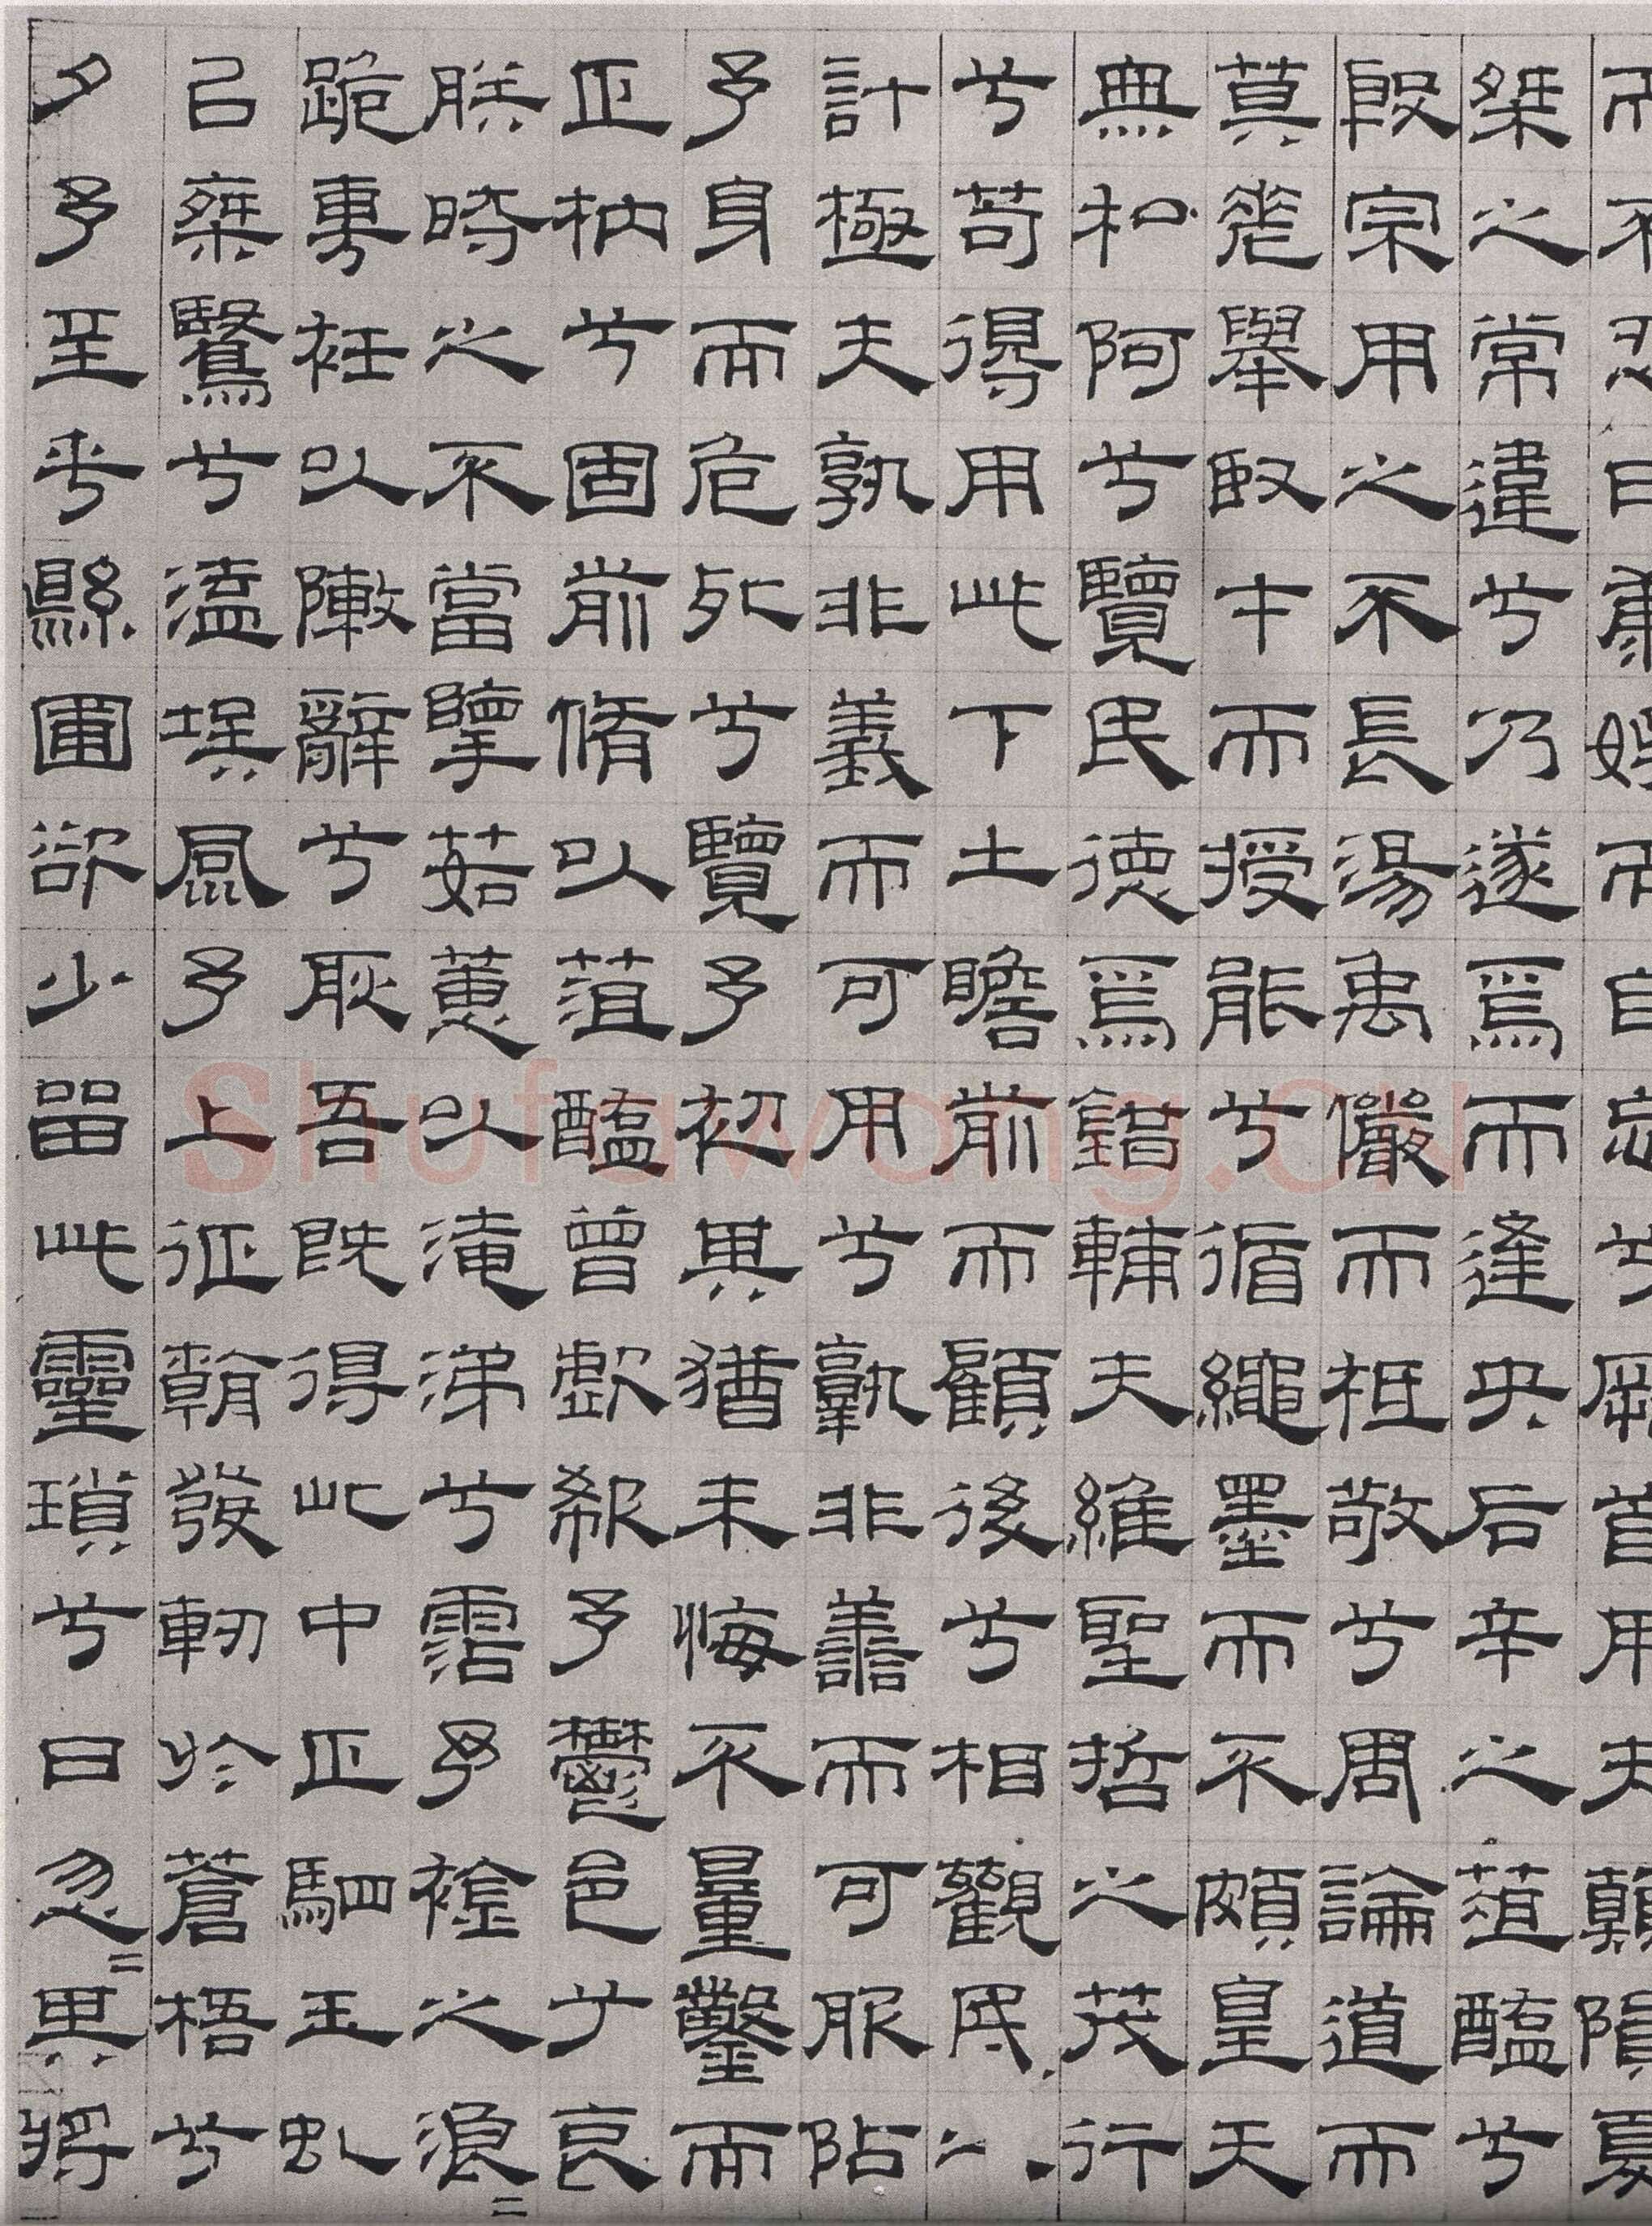 而不忍日康娛而自忘兮厥首用夫顛隕夏
桀之常違兮乃遂焉而逢央后辛之菹醢兮
殷宗用之不長湯禹儼而祗敬兮周論道而
莫差舉取才而授能兮循繩墨而不頗皇天
無私阿兮覽民德焉錯輔夫維聖哲之茂行
兮苟得用此下土瞻前而顧後兮相觀民之
計極夫孰非義而可用兮孰非善而可服阽
予身而危死兮覽予初其猶未悔不量鑿而
正枘兮固前脩以菹醢曾歔欷予鬱邑兮哀
朕時之不當擥茹蕙以淹涕兮霑予襟之浪=
跪尃衽以陳辭兮耿吾既得此中正駟玉虬
以椉鷖兮溘埃風予上征朝發軔於蒼梧兮
夕予至乎縣圃欲少留此靈瑣兮日忽=其將
Shufawang.CN